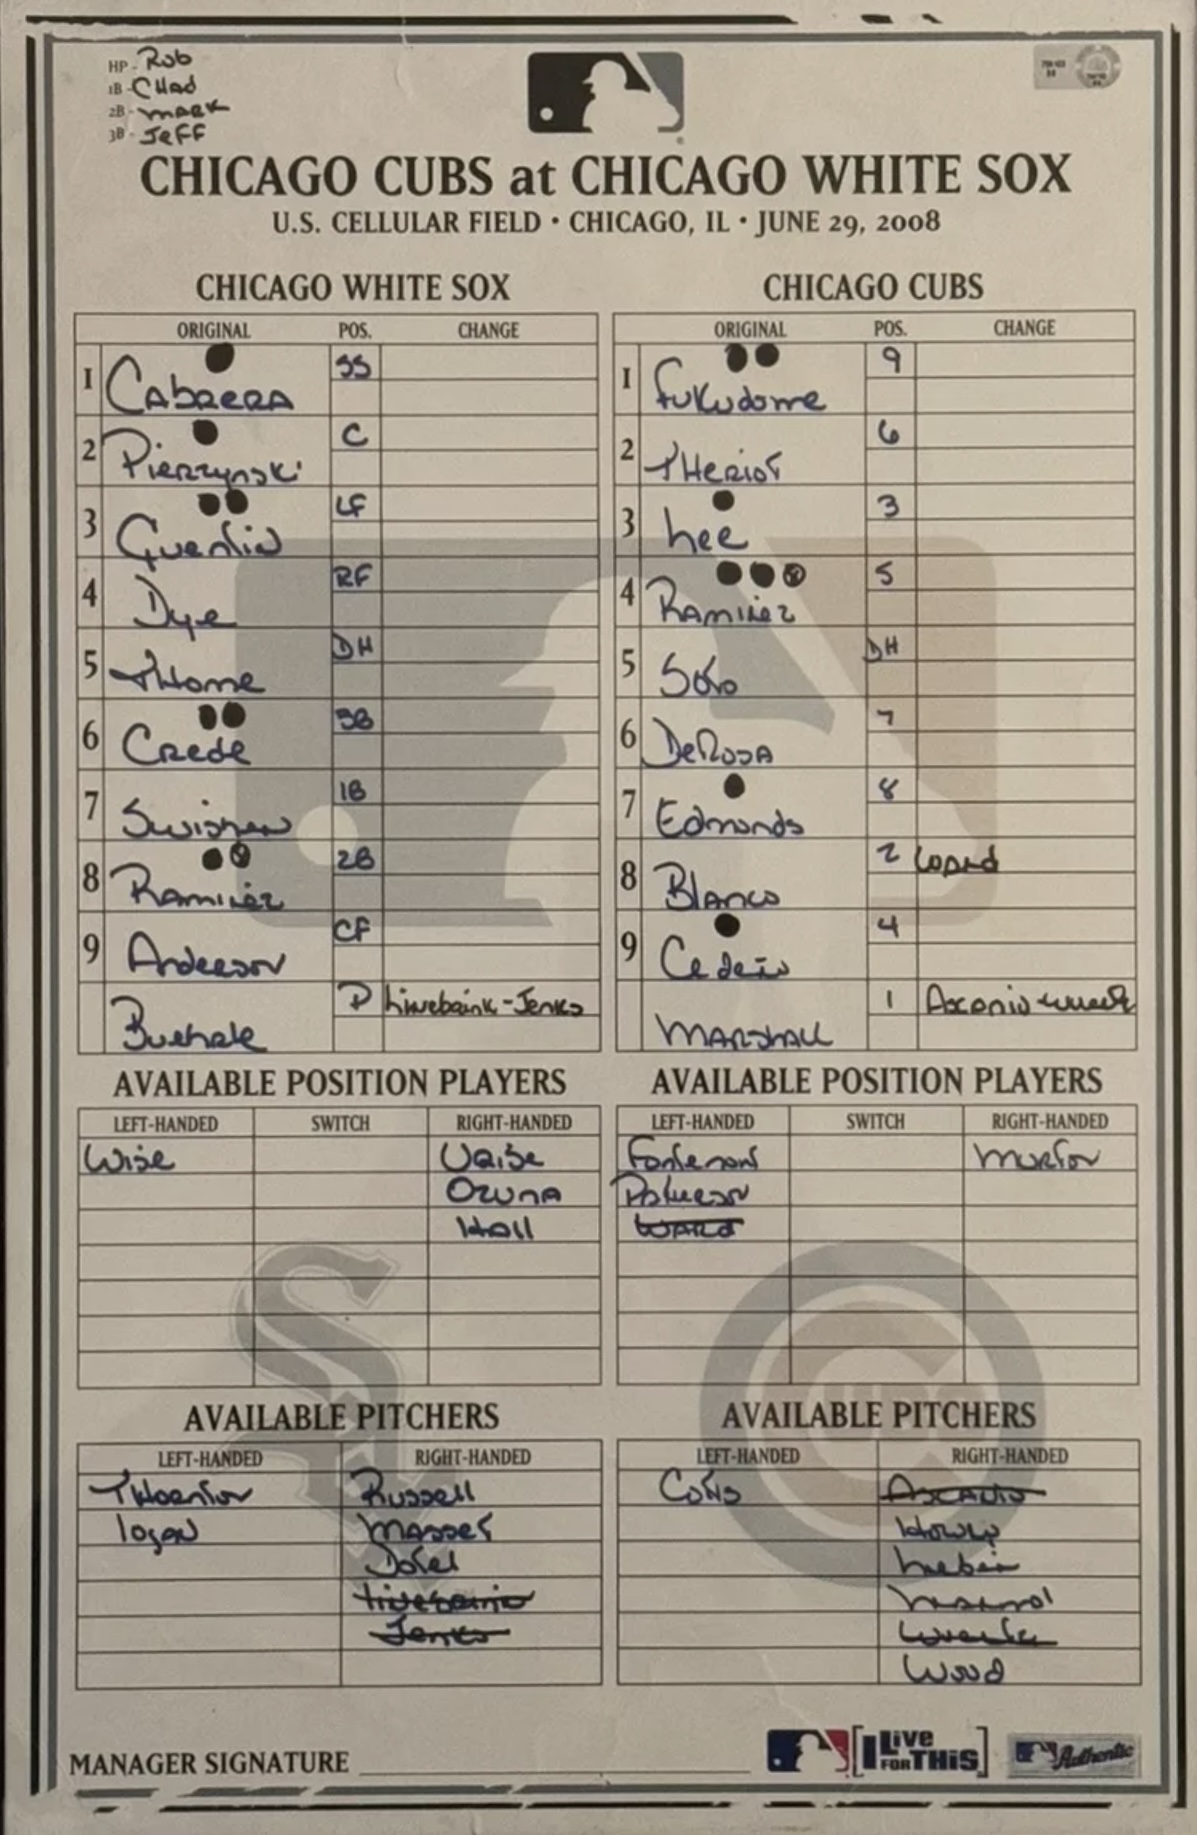 HP - Rob
1B - CHad
2B - mark
3B - Jeff
CHICAGO CUBS at CHICAGO WHITE SOX
U.S. CELLULAR FIELD • CHICAGO, IL • JUNE 29, 2008
CHICAGO WHITE SOX
ORIGINAL POS. CHANGE
1 Cabrera SS
2 Pierzynski C
3 Quentin LF
4 Dye RF
5 Thome DH
6 Crede 3B
7 Swisher 1B
8 Ramirez 2B
9 Anderson CF
Buehrle P Linebrink - Jenks
AVAILABLE POSITION PLAYERS
LEFT-HANDED SWITCH RIGHT-HANDED
Wise Uribe
Ozuna
Hall
AVAILABLE PITCHERS
LEFT-HANDED RIGHT-HANDED
Thornton Russell
Logan Masset
Dotel
Linebrink
Jenks
CHICAGO CUBS
ORIGINAL POS. CHANGE
1 Fukudome 9
2 Theriot 6
3 Lee 3
4 Ramirez 5
5 Soto DH
6 DeRosa 7
7 Edmonds 8
8 Blanco 2 Ward
9 Cedeño 4
Marshall 1 Ascanio -
AVAILABLE POSITION PLAYERS
LEFT-HANDED SWITCH RIGHT-HANDED
Fontenot Murton
Patterson
Ward
AVAILABLE PITCHERS
LEFT-HANDED RIGHT-HANDED
Cotts Ascanio
Howry
Lieber
Marmol
Wuertz
Wood
MANAGER SIGNATURE
I Live FOR THiS
Authentic
CUBS